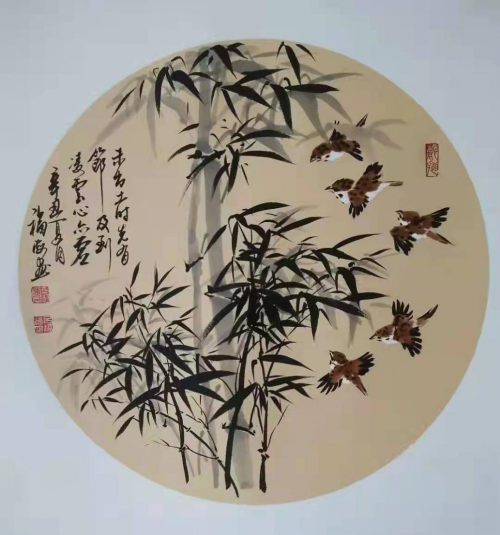 未出土时先有
節及到
凌雲心亦虚
辛丑夏月
福画